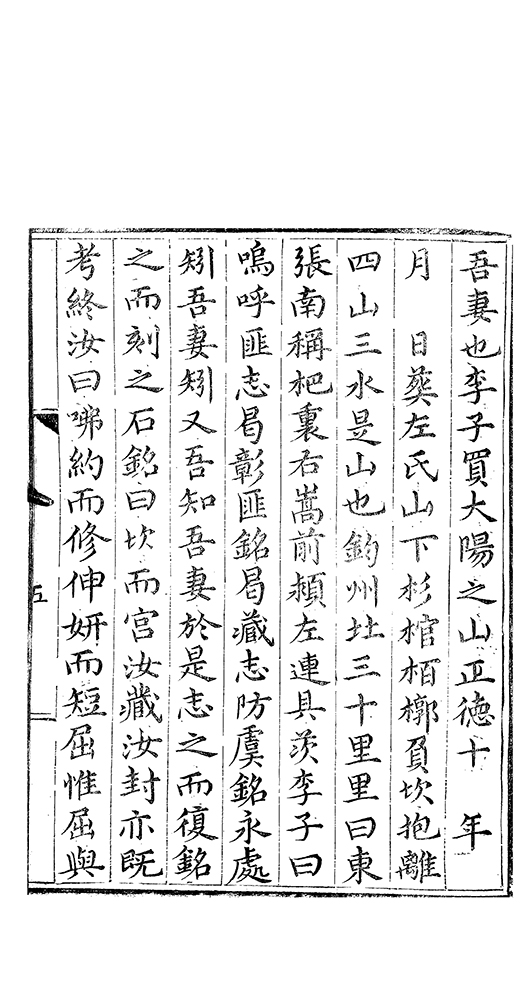 吾妻也李子買大陽之山正徳十　年
月　日葬左氏山下杉棺栢槨負坎抱離
四山三水是山也鈞州北三十里里曰東
張南稱杷裏右嵩前頴左連具茨李子曰
嗚呼匪志曷彰匪銘曷藏志防虞銘永處
矧吾妻矧又吾知吾妻於是志之而復銘
之而刻之石銘曰坎而宫汝藏汝封亦既
考終汝曰咈約而修伸妍而短屈惟屈與
五